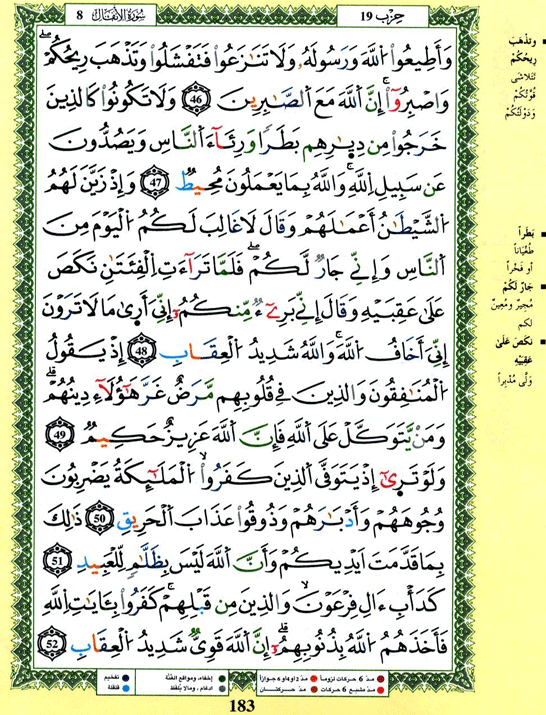 سُورَةُ الأَنفَال 8
حِزْب 19
وَأَطِيعُوا۟ اَ۬للَّهَ وَرَسُولَهُۥ وَلَا تَنَٰزَعُوا۟ فَتَفْشَلُوا۟ وَتَذْهَبَ رِيحُكُمْۖ
وَاصْبِرُوٓا۟ۖ إِنَّ اَ۬للَّهَ مَعَ اَ۬لصَّٰبِرِينَ 46 وَلَا تَكُونُوا۟ كَالذِينَ
خَرَجُوا۟ مِن دِيٰ۪رِهِم بَطَرٗا وَرِئَآءَ اَ۬لنَّاسِ وَيَصُدُّونَ
عَن سَبِيلِ اِ۬للَّهِۖ وَاللَّهُ بِمَا يَعْمَلُونَ مُحِيطٞ 47 وَإِذْ زَيَّنَ لَهُمُ
اُ۬لشَّيْطَٰنُ أَعْمَٰلَهُمْ وَقَالَ لَا غَالِبَ لَكُمُ اُ۬لْيَوْمَ مِنَ
اَ۬لنَّاسِ وَإِنِّي جَارٞ لَّكُمْۖ فَلَمَّا تَرَآءَتِ اِ۬لْفِئَتَٰنِ نَكَصَ
عَلَىٰ عَقِبَيْهِ وَقَالَ إِنِّي بَرِيٓءٞ مِّنكُمُۥٓ إِنِّيَ أَر۪ىٰ مَا لَا تَرَوْنَ
إِنِّيَ أَخَافُ اُ۬للَّهَۖ وَاللَّهُ شَدِيدُ اُ۬لْعِقَابِ 48 إِذْ يَقُولُ
اُ۬لْمُنَٰفِقُونَ وَالذِينَ فِي قُلُوبِهِم مَّرَضٌ غَرَّ هَٰٓؤُلَآءِ دِينُهُمْۖ
وَمَنْ يَّتَوَكَّلْ عَلَى اَ۬للَّهِ فَإِنَّ اَ۬للَّهَ عَزِيزٌ حَكِيمٞ 49
وَلَوْ تَر۪ىٰٓ إِذْ يَتَوَفَّى اَ۬لذِينَ كَفَرُوا۟ اُ۬لْمَلَٰٓئِكَةُ يَضْرِبُونَ
وُجُوهَهُمْ وَأَدْبَٰرَهُمْ وَذُوقُوا۟ عَذَابَ اَ۬لْحَرِيقِ 50 ذَٰلِكَ
بِمَا قَدَّمَتَ اَيْدِيكُمْ وَأَنَّ اَ۬للَّهَ لَيْسَ بِظَلَّٰمٖ لِّلْعَبِيدِ 51
كَدَأْبِ ءَالِ فِرْعَوْنَ وَالذِينَ مِن قَبْلِهِمْۖ كَفَرُوا۟ بِـَٔايَٰتِ اِ۬للَّهِ
فَأَخَذَهُمُ اُ۬للَّهُ بِذُنُوبِهِمُۥٓۖ إِنَّ اَ۬للَّهَ قَوِيّٞ شَدِيدُ اُ۬لْعِقَابِ 52
وتَذْهَبَ
رِيحُكُمْ
تَتَلاشَى
قُوَّتُكُمْ
وَدَوْلَتُكُمْ
بَطَراً
طُغْيَاناً
أو فَخْراً
جَارٌ لَكُمْ
مُجِيرٌ ومُعِينٌ
لكم
نَكَصَ عَلَى
عَقِبَيْهِ
وَلَّى مُدْبِراً
مدّ 6 حركات لزوماً
مدّ 2 أو 4 أو 6 جوازاً
إخفاء، ومواقع الغُنَّة
تفخيم
مدّ مشبع 6 حركات
مدّ حركتـــان
ادغام، وما لا يُلفَظ
قلقلة
183